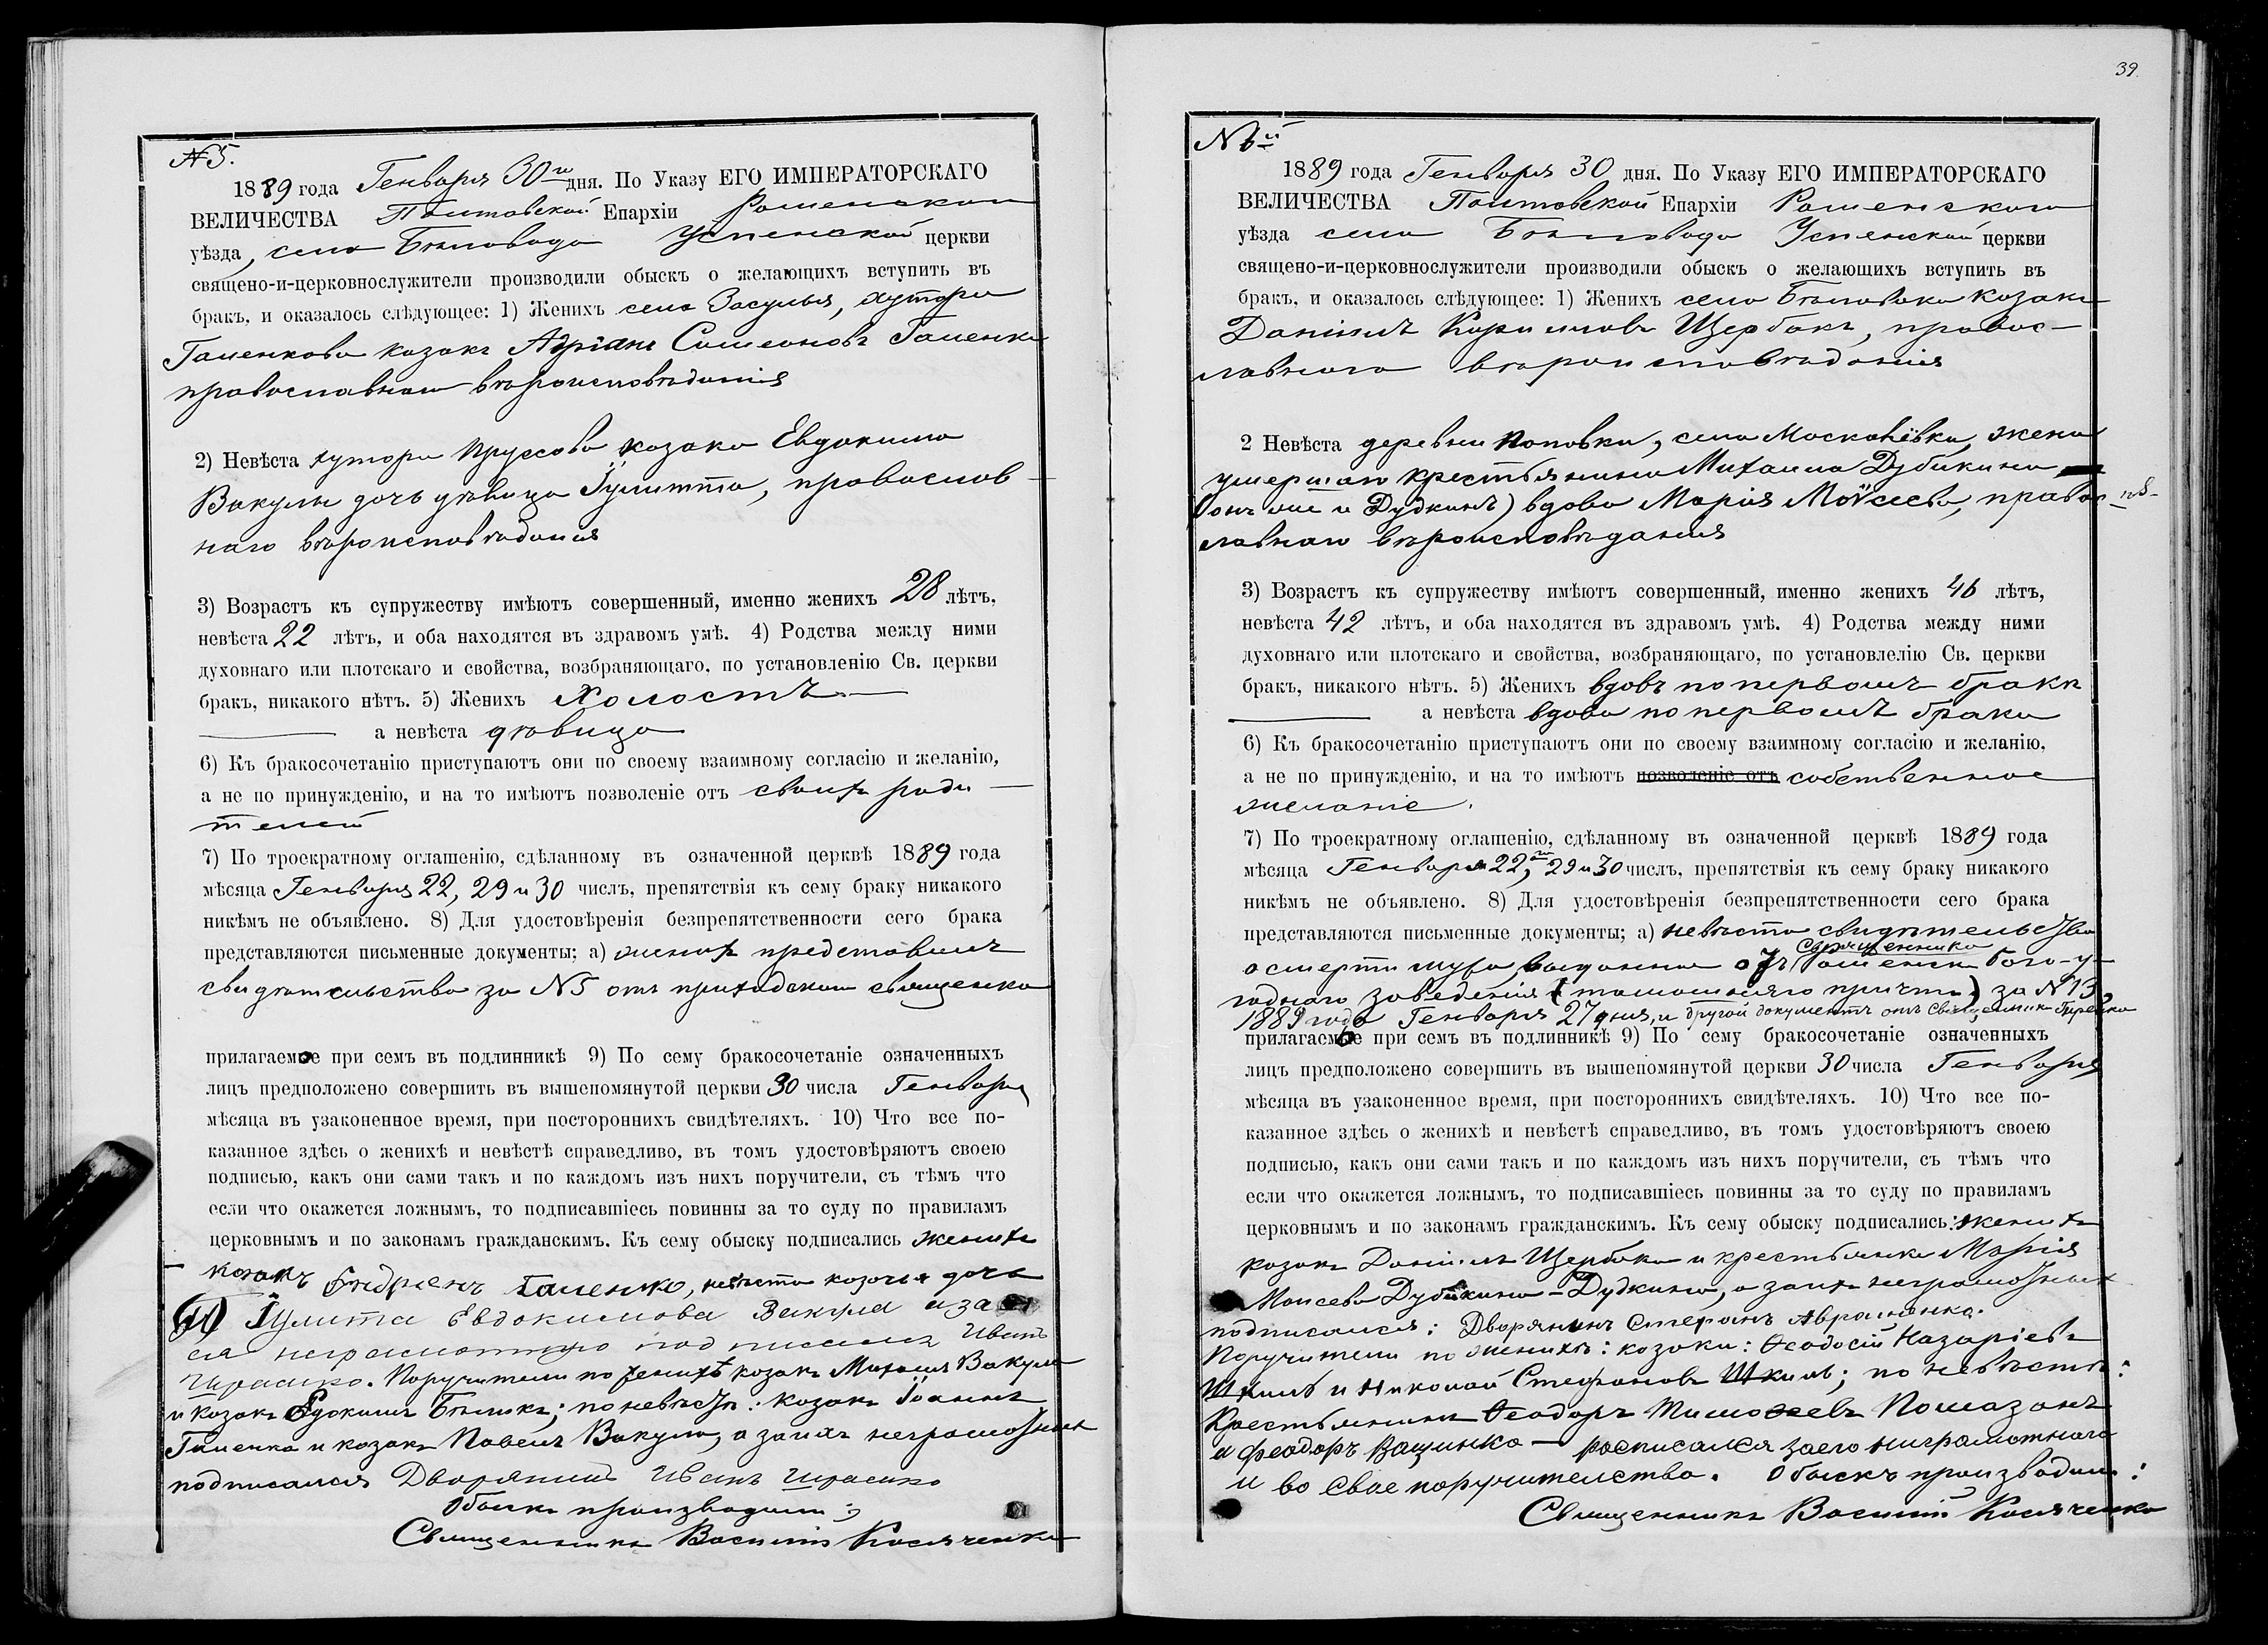 №5.
1889 года Генваря 30го дня. По Указу ЕГО ИМПЕРАТОРСКАГО
ВЕЛИЧЕСТВА Полтавской Епархіи Роменскаго
уѣзда, села Бѣловода Успенской церкви
священо-и-церковнослужители производили обыскъ о желающихъ вступить въ
бракъ, и оказалось слѣдующее: 1) Женихъ села Засулья, хутора
Галенкова козакъ Адріанъ Симеоновъ Галенко
православнаго вѣроисповѣданія
2) Невѣста хутора Пруссова козака Евдокима
Вакулы дочь дѣвица Іулитта, православ-
наго вѣроисповѣданія
3) Возрастъ къ супружеству имѣютъ совершенный, именно женихъ 28 лѣтъ,
невѣста 22 лѣтъ, и оба находятся въ здравомъ умѣ. 4) Родства между ними
духовнаго или плотскаго и свойства, возбраняющаго, по установленію Св. церкви
бракъ, никакого нѣтъ. 5) Женихъ Холостъ
а невѣста дѣвица
6) Къ бракосочетанію приступаютъ они по своему взаимному согласію и желанію,
а не по принужденію, и на то имѣютъ позволеніе отъ своихъ роди-
телей
7) По троекратному оглашенію, сдѣланному въ означенной церквѣ 1889 года
мѣсяца Генваря 22, 29 и 30 числъ, препятствія къ сему браку никакого
никѣмъ не объявлено. 8) Для удостовѣренія безпрепятственности сего брака
представляются письменные документы; а) женихъ представилъ
свидѣтельство за №5 отъ приходскаго священника
прилагаемое при семъ въ подлинникѣ 9) По сему бракосочетаніе означенныхъ
лицъ предположено совершить въ вышепомянутой церкви 30 числа Генваря
мѣсяца въ узаконенное время, при постороннихъ свидѣтеляхъ. 10) Что все по-
казанное здѣсь о женихѣ и невѣстѣ справедливо, въ томъ удостовѣряютъ своею
подписью, какъ они сами такъ и по каждомъ изъ нихъ поручители, съ тѣмъ что
если что окажется ложнымъ, то подписавшіесь повинны за то суду по правиламъ
церковнымъ и по законамъ гражданскимъ. Къ сему обыску подписались женихъ
козакъ Андріенъ Галенко, невѣста козачья дочь
Іулита Евдокимова Вакула а за
ея неграмотную подписался Иванъ
Поручители по женихѣ козакъ Михаилъ Вакула
и козакъ Евдокимъ Бѣликъ; по невѣстѣ: козакъ Іоаннъ
Галенко и козакъ Павелъ Вакула, а за ихъ неграмотныхъ
подписался Дворянинъ Иванъ
Обыскъ производилъ:
Священникъ Василій Косяченко
39
№ 6й
1889 года Генваря 30 дня. По Указу ЕГО ИМПЕРАТОРСКАГО
ВЕЛИЧЕСТВА Полтавской Епархіи Роменскаго
уѣзда села Бѣловода Успенской церкви
священо-и-церковнослужители производили обыскъ о желающихъ вступить въ
бракъ, и оказалось слѣдующее: 1) Женихъ села Бѣловода козакъ
Даніилъ Кириловъ Щербакъ, правос-
лавнаго вѣроисповѣданія
2 Невѣста деревни Поповки, села Москалівки, жена
умершаго крестьянина Михаила Дубикина
(онъ же и Дудкинъ) вдова Марія Моѵсеева, правос-
лавнаго вѣроисповѣданія
3) Возрастъ къ супружеству имѣютъ совершенный, именно женихъ 46 лѣтъ,
невѣста 42 лѣтъ, и оба находятся въ здравомъ умѣ. 4) Родства между ними
духовнаго или плотскаго и свойства, возбраняющаго, по установлелію Св. церкви
бракъ, никакого нѣтъ. 5) Женихъ вдовъ по первомъ бракѣ
а невѣста вдова по первомъ бракѣ
6) Къ бракосочетанію приступаютъ они по своему взаимному согласію и желанію,
а не по принужденію, и на то имѣютъ позволеніе отъ собственное
желаніе.
7) По троекратному оглашенію, сдѣланному въ означенной церквѣ 1889 года
мѣсяца Генваря 22, 29 и 30 числъ, препятствія къ сему браку никакого
никѣмъ не объявлено. 8) Для удостовѣренія безпрепятственности сего брака
представляются письменные документы; а) невѣста свидѣтельство
священника
о смерти мужа, выданное отъ Роменск. Бого-у-
годнаго заведенія (тамошняго причта) за №13,
1889 года Генваря 27 дня, и другой документъ отъ Священника
прилагаемые при семъ въ подлинникѣ 9) По сему бракосочетаніе означенныхъ
лицъ предположено совершить въ вышепомянутой церкви 30 числа Генваря
мѣсяца въ узаконенное время, при постороннихъ свидѣтеляхъ. 10) Что все по-
казанное здѣсь о женихѣ и невѣстѣ справедливо, въ томъ удостовѣряютъ своею
подписью, какъ они сами такъ и по каждомъ изъ нихъ поручители, съ тѣмъ что
если что окажется ложнымъ, то подписавшіесь повинны за то суду по правиламъ
церковнымъ и по законамъ гражданскимъ. Къ сему обыску подписались: женихъ
козакъ Даніилъ Щербакъ и крестьянка Марія
Моисеева Дубикина-Дудкина, а за ихъ неграмотныхъ
подписался: Дворянинъ Стефанъ Авраменко.
Поручители по женихѣ: козаки: Ѳеодосій Назаріевъ
Шкиль и Николай Стефановъ Шкиль; по невѣстѣ:
Крестьянинъ Ѳеодоръ Тимоѳеевъ Помазанъ
и Феодоръ Ващинко — росписался за его неграмотнаго
и во свое поручителство. Обыскъ производилъ:
Священникъ Василій Косяченко